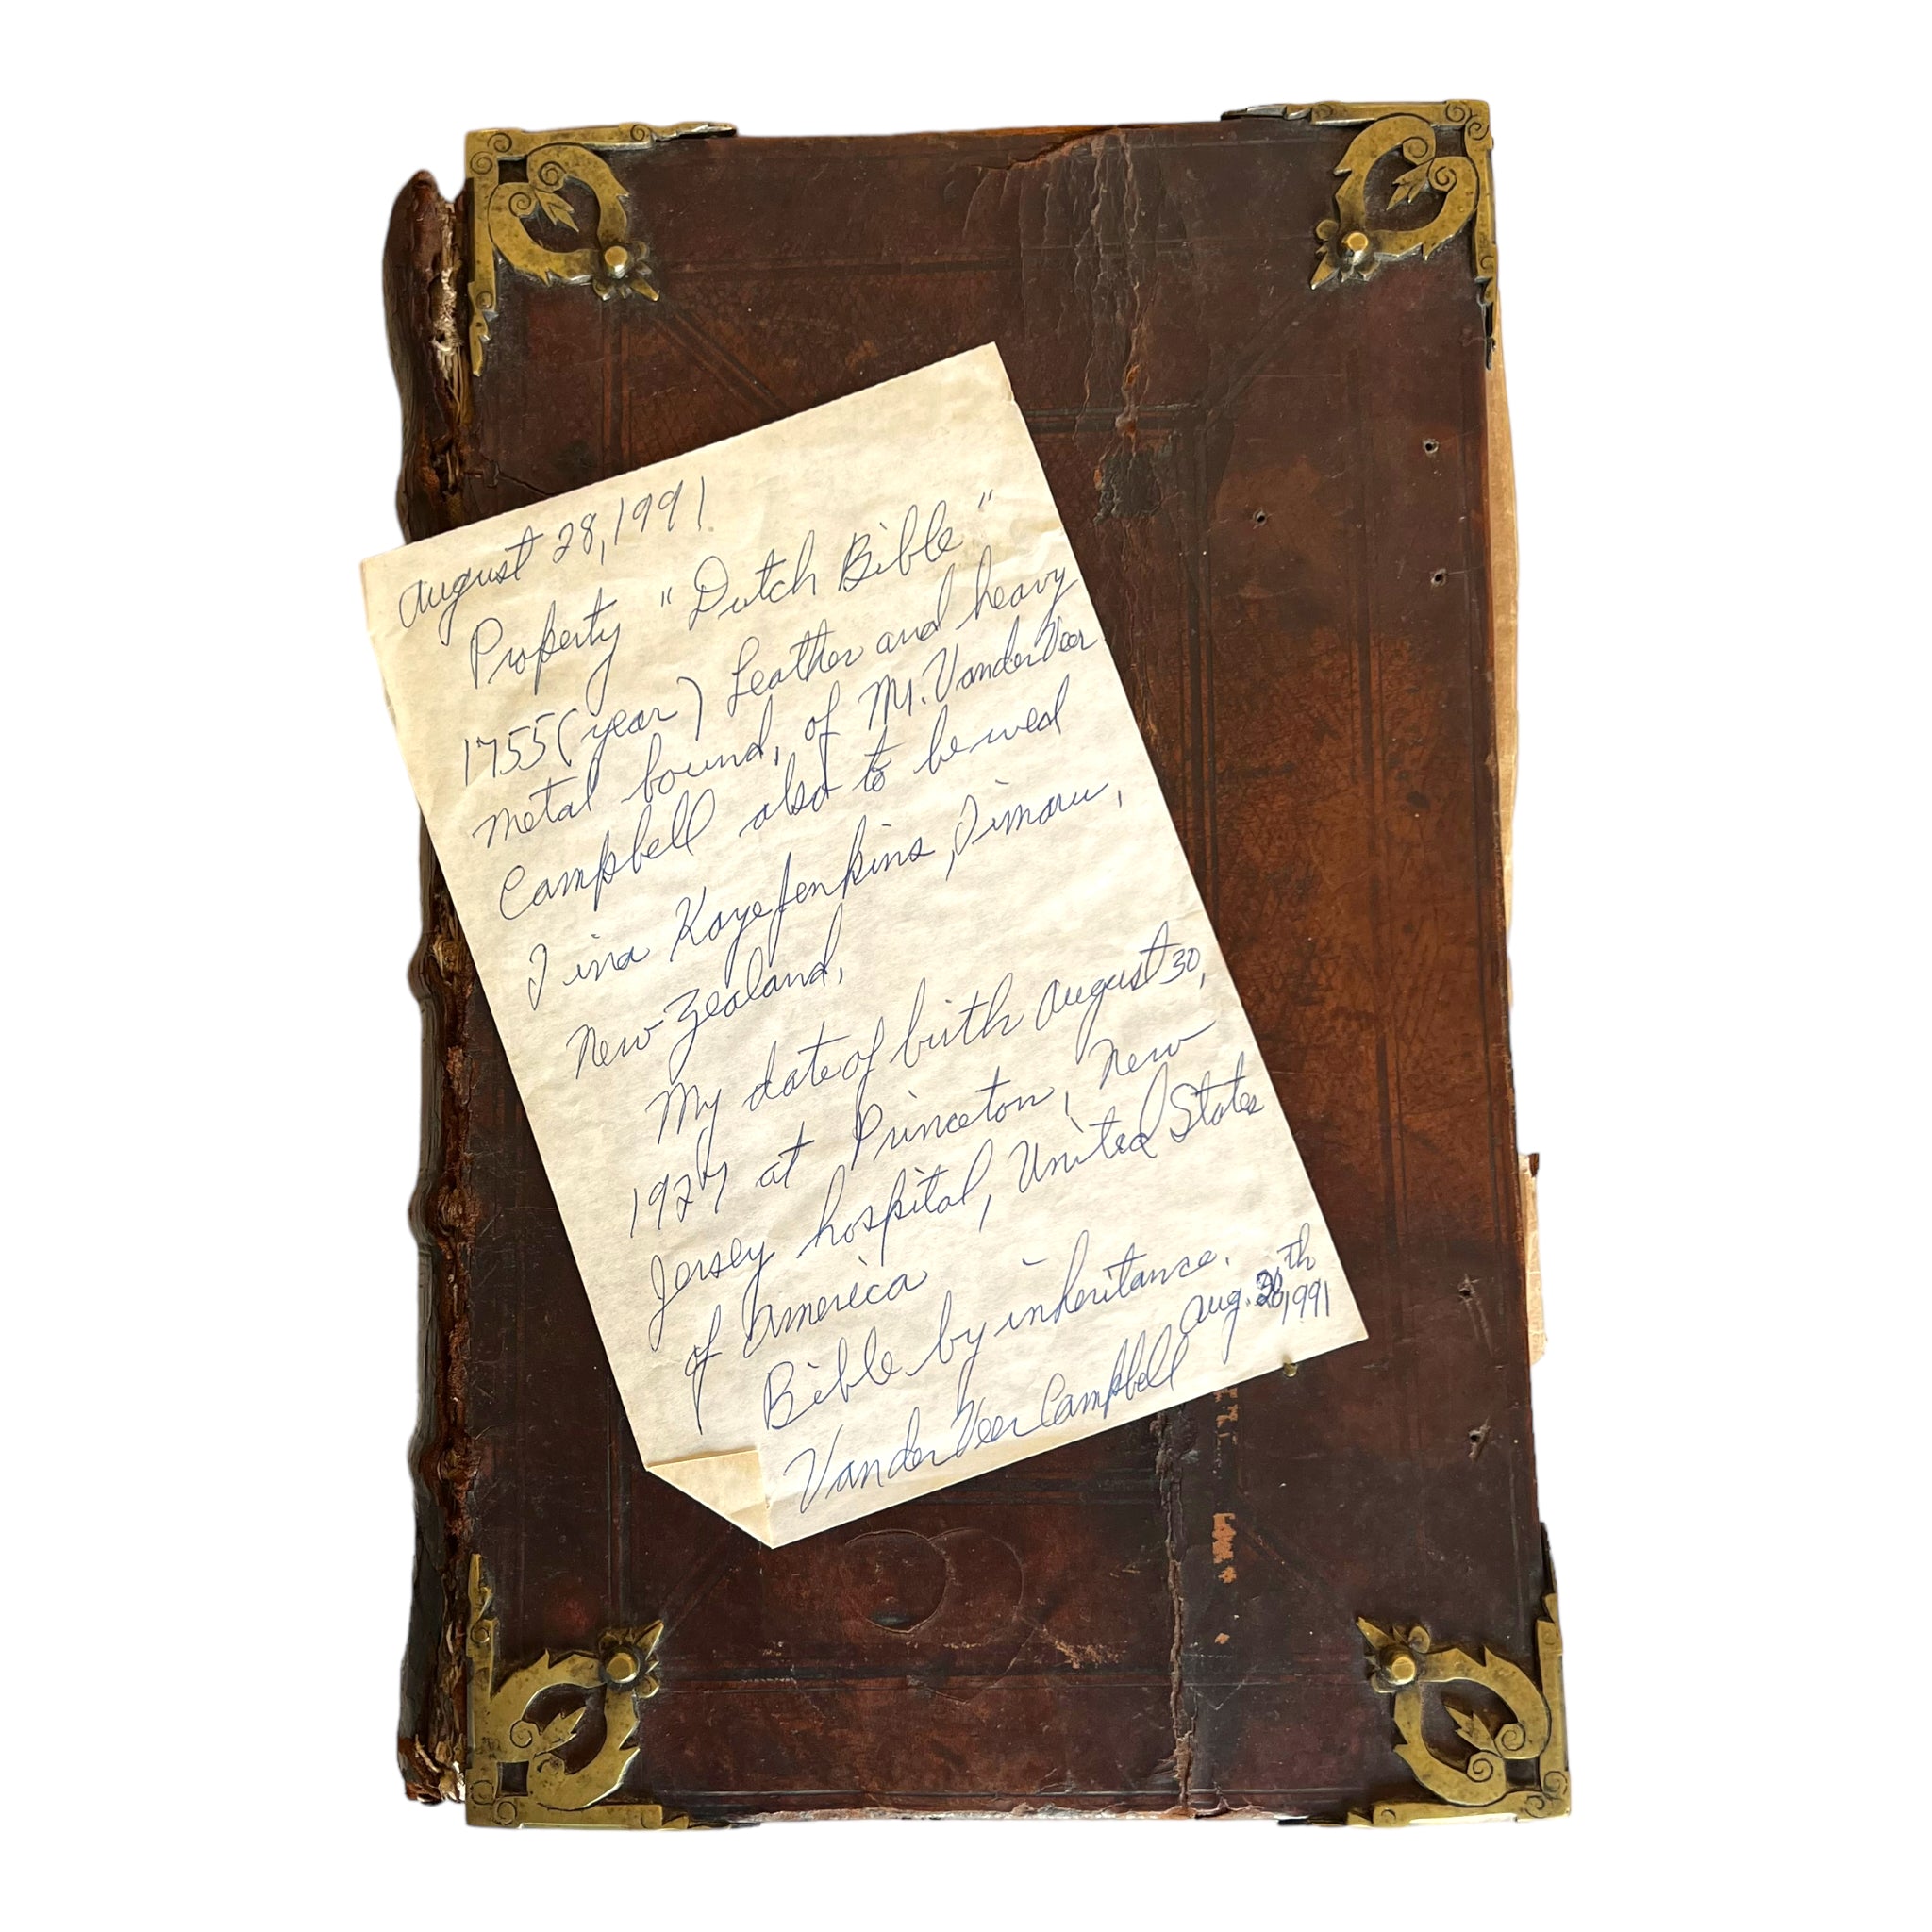 August 28, 1991
Property "Dutch Bible"
1755 (year) Leather and heavy
metal bound, of M. VanderVeer
Campbell also to be wed
Tina Kaye Jenkins, Timaru,
New Zealand,
My date of birth August 30,
1927 at Princeton, New
Jersey hospital, United States
of America
Bible by inheritance.
VanderVeer Campbell Aug. th, 1991